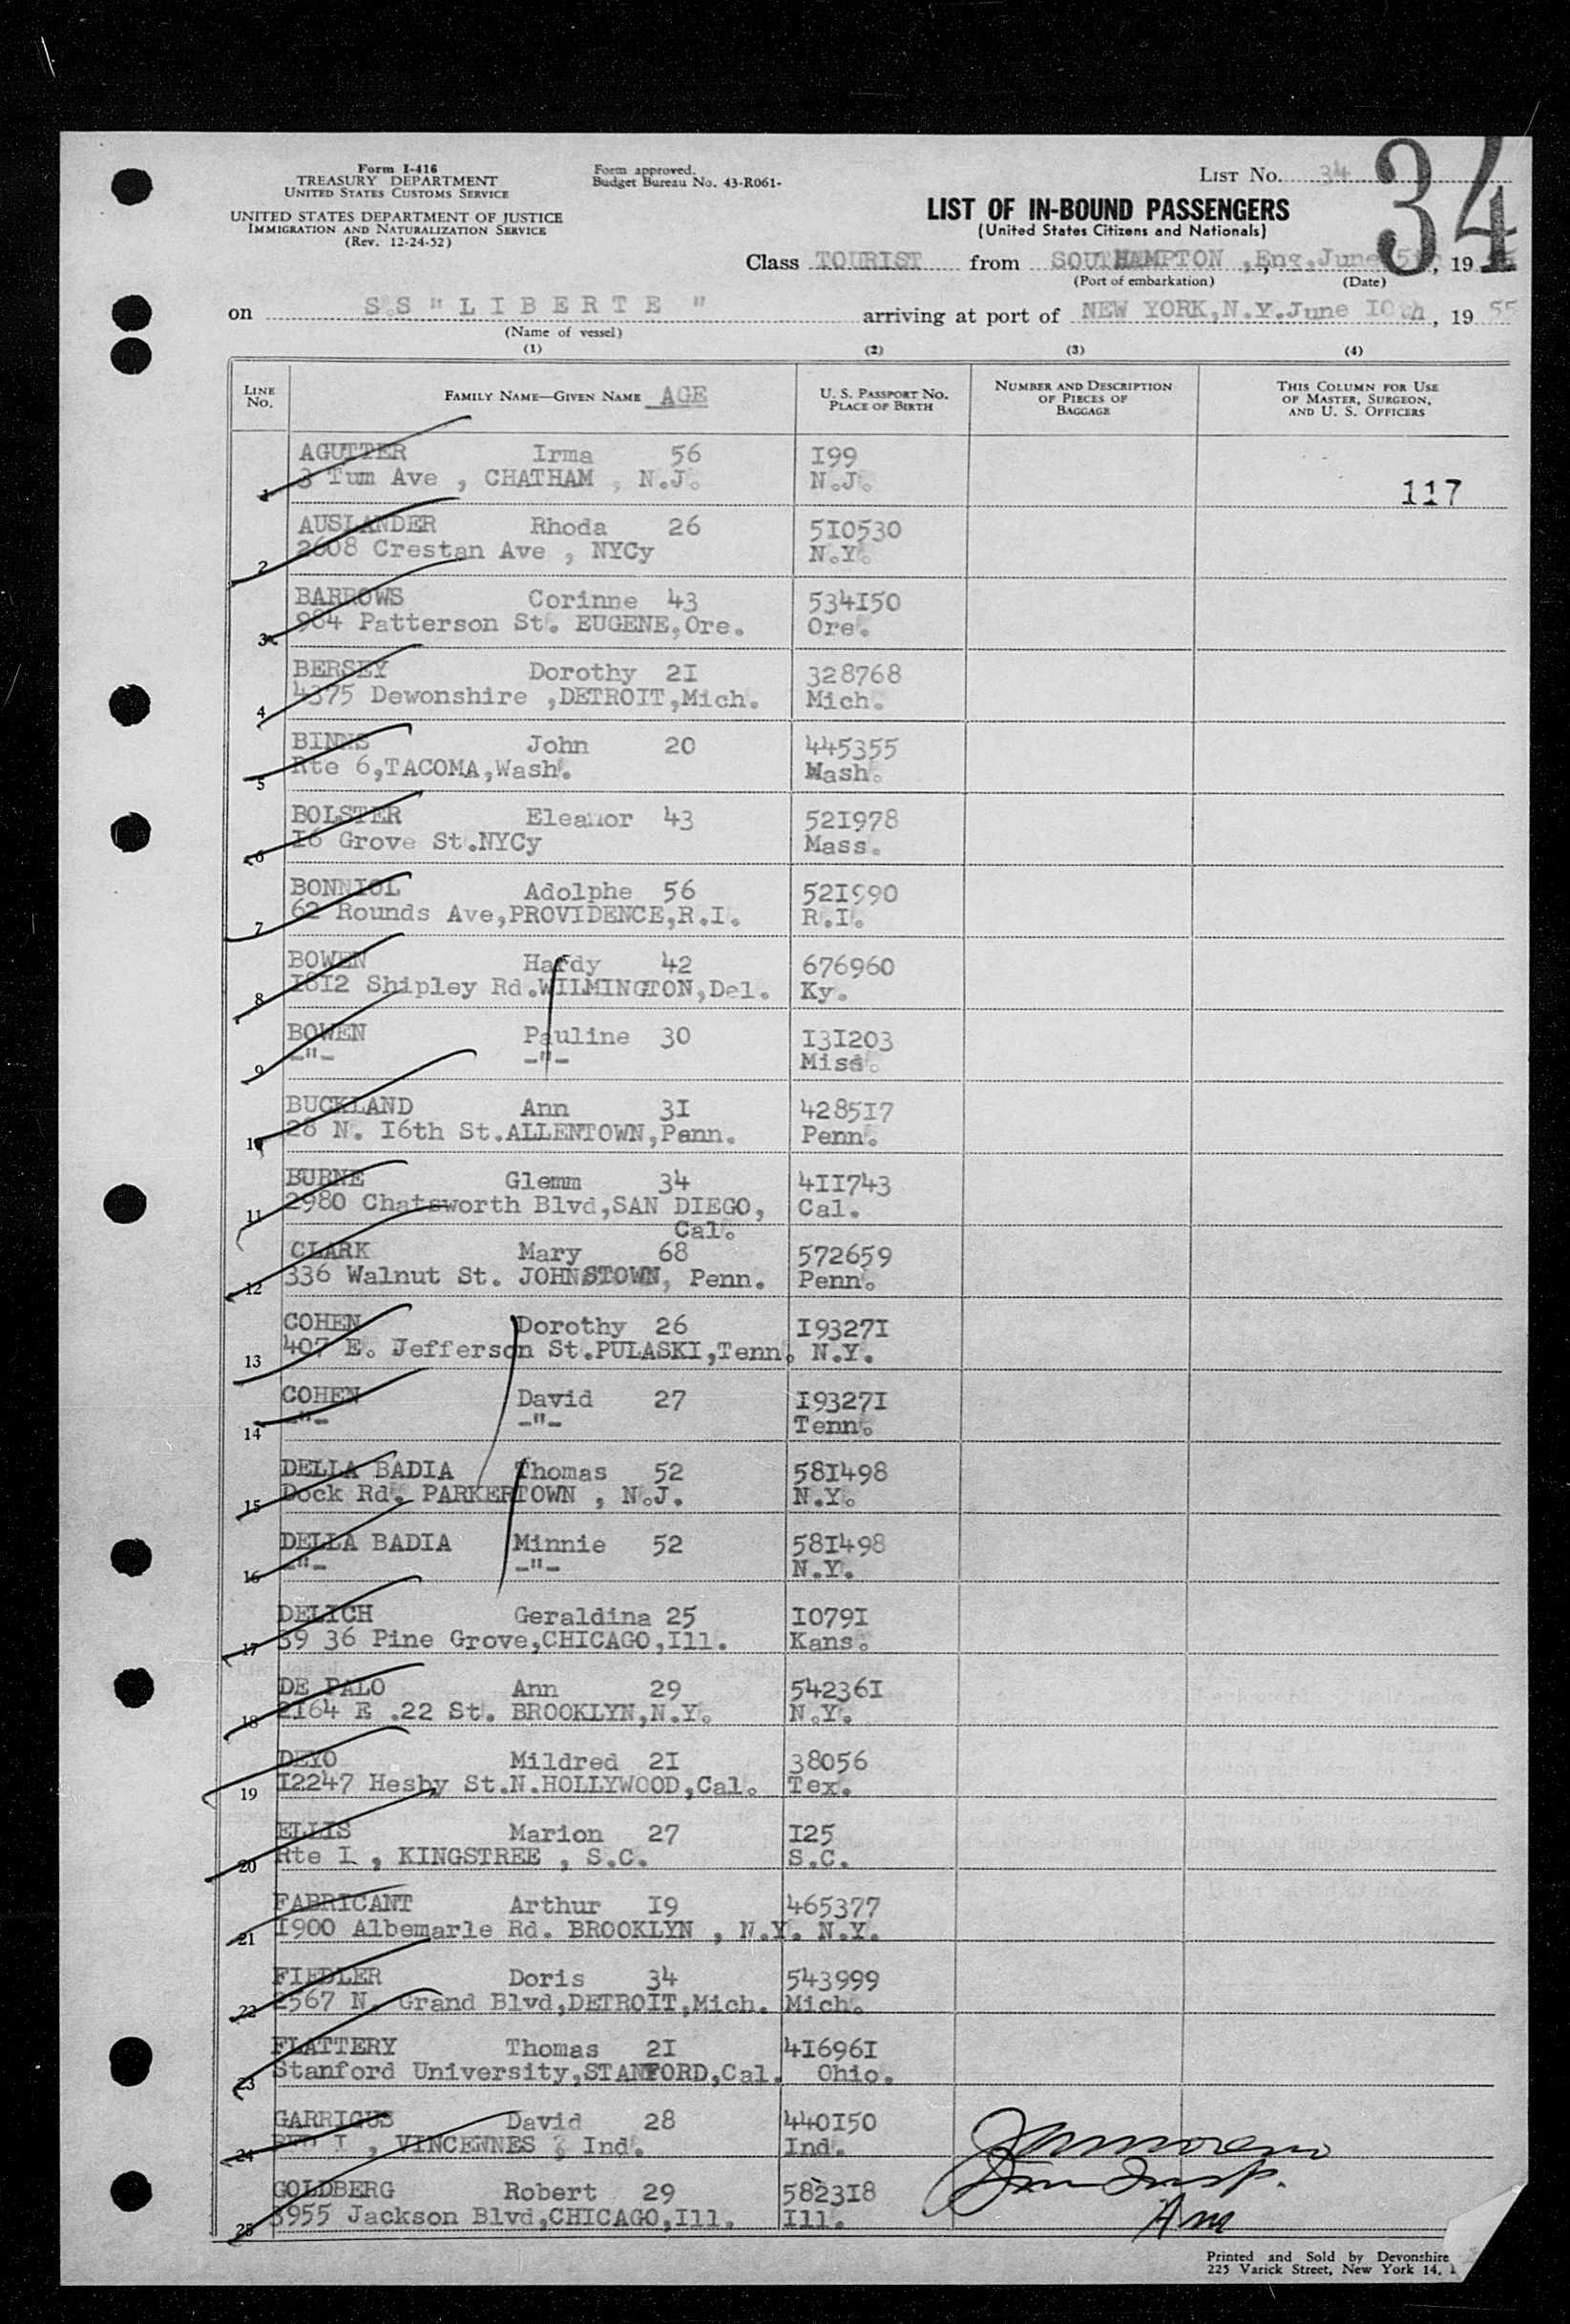 Form I-416
TREASURY DEPARTMENT
UNITED STATES CUSTOMS SERVICE
UNITED STATES DEPARTMENT OF JUSTICE
IMMIGRATION AND NATURALIZATION SERVICE
(Rev. 12-24-52)
Form approved.
Budget Bureau No. 43-R061-
LIST NO. 34
34
LIST OF IN-BOUND PASSENGERS
(United States Citizens and Nationals)
Class TOURIST from SOUTHAMPTON , Eng, June 19
(Port of embarkation) (Date)
on S.S " L I B E R T E " arriving at port of NEW YORK, N.Y. June 10th, 19 55
(Name of vessel)
(1) (2) (3) (4)
LINE No. FAMILY NAME—GIVEN NAME AGE U. S. PASSPORT NO. PLACE OF BIRTH NUMBER AND DESCRIPTION OF PIECES OF BAGGAGE THIS COLUMN FOR USE OF MASTER, SURGEON, AND U. S. OFFICERS
AGUTTER Irma 56 I99
1 3 Tum Ave , CHATHAM , N.J. N.J. 117
AUSLANDER Rhoda 26 5I0530
2 2608 Crestan Ave , NYCy N.Y.
BARROWS Corinne 43 534I50
3 984 Patterson St. EUGENE,Ore. Ore.
BERSEY Dorothy 2I 328768
4 4375 Dewonshire ,DETROIT,Mich. Mich.
BINNS John 20 445355
5 Rte 6,TACOMA,Wash. Wash.
BOLSTER Eleanor 43 52I978
6 I6 Grove St.NYCy Mass.
BONNIOL Adolphe 56 52I990
7 62 Rounds Ave,PROVIDENCE,R.I. R.I.
BOWEN Hardy 42 676960
8 I8I2 Shipley Rd.WILMINGTON,Del. Ky.
BOWEN Pauline 30 I3I203
9 -"- -"- Miss.
BUCKLAND Ann 3I 4285I7
10 28 N. I6th St.ALLENTOWN,Penn. Penn.
BURNE Glemm 34 4II743
11 2980 Chatsworth Blvd,SAN DIEGO, Cal.
Cal.
CLARK Mary 68 572659
12 336 Walnut St. JOHNSTOWN, Penn. Penn.
COHEN Dorothy 26 I9327I
13 407 E. Jefferson St.PULASKI,Tenn. N.Y.
COHEN David 27 I9327I
14 -"- -"- Tenn.
DELLA BADIA Thomas 52 58I498
15 Dock Rd. PARKERTOWN , N.J. N.Y.
DELLA BADIA Minnie 52 58I498
16 -"- -"- N.Y.
DELICH Geraldina 25 I079I
17 39 36 Pine Grove,CHICAGO,Ill. Kans.
DE PALO Ann 29 54236I
18 2I64 E .22 St. BROOKLYN,N.Y. N.Y.
DEYO Mildred 2I 38056
19 I2247 Hesby St.N.HOLLYWOOD,Cal. Tex.
ELLIS Marion 27 I25
20 Rte I , KINGSTREE , S.C. S.C.
FABRICANT Arthur I9 465377
21 I900 Albemarle Rd. BROOKLYN , N.Y. N.Y.
FIEDLER Doris 34 543999
22 2567 N. Grand Blvd,DETROIT,Mich. Mich.
FLATTERY Thomas 2I 4I696I
23 Stanford University,STANFORD,Cal. Ohio.
GARRIGUS David 28 440I50
24 RFD I , VINCENNES , Ind. Ind.
GOLDBERG Robert 29 5823I8
25 3955 Jackson Blvd,CHICAGO,Ill. Ill.
Printed and Sold by Devonshire
225 Varick Street, New York 14,